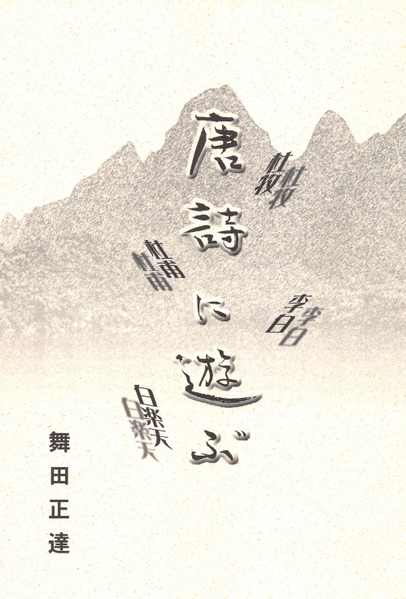 唐詩に遊ぶ
杜牧
杜甫
李白
白楽天
舞田正達